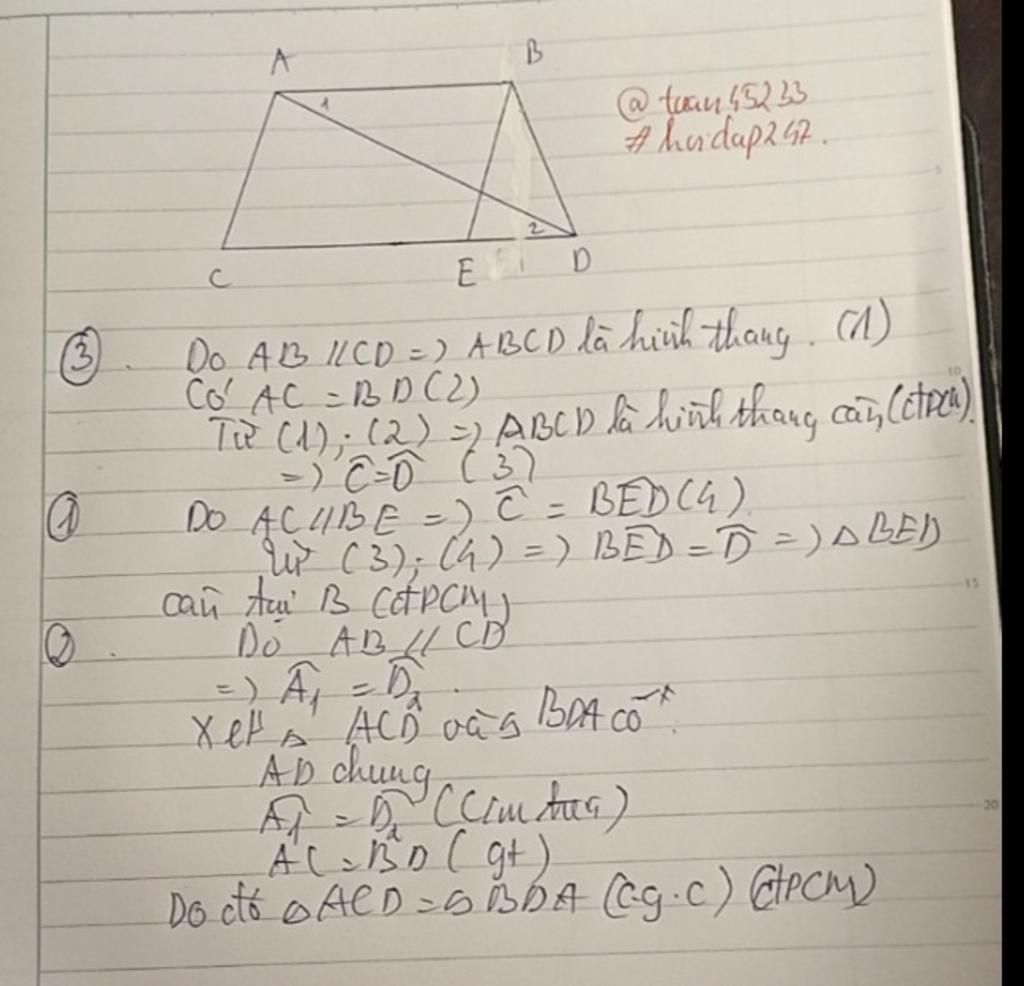 A
B
1
@tuan45233
#hoidap247.
2
C
E
D
③. Do AB // CD => ABCD là hình thang. (1)
Có AC = BD (2)
Từ (1); (2) => ABCD là hình thang cân (đpcm).
=> Ĉ = D̂ (3)
① Do AC // BE => Ĉ = BÊD (4)
Từ (3); (4) => BÊD = D̂ => △ BED
cân tại B (đPCM)
②. Do AB // CD
=> Â₁ = D̂₂.
Xét △ ACD và △ BDA có
AD chung
Â₁ = D̂₂ (Cm trên)
AC = BD (gt)
Do đó △ ACD = △ BDA (c.g.c) (đPCM)